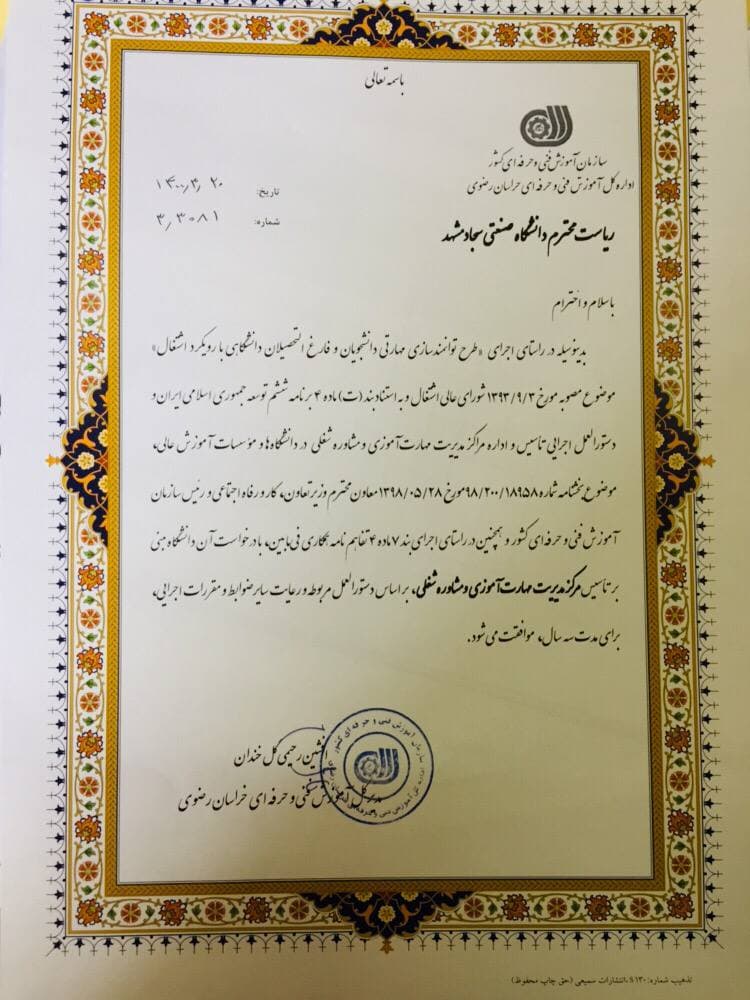 باسمه تعالی
سازمان آموزش فنی و حرفه ای کشور
اداره کل آموزش فنی و حرفه ای خراسان رضوی
تاریخ: ۱۴۰۰/۴/۲۰
شماره: ۴/۳۰۸۱
ریاست محترم دانشگاه صنعتی سجاد مشهد
با سلام و احترام
بدینوسیله در راستای اجرای «طرح توانمندسازی مهارتی دانشجویان و فارغ التحصیلان دانشگاهی با رویکرد اشتغال»
موضوع مصوبه مورخ ۱۳۹۳/۹/۳ شورای عالی اشتغال و به استناد بند (ت) ماده ۴ برنامه ششم توسعه جمهوری اسلامی ایران و
دستورالعمل اجرایی تاسیس و اداره مراکز مدیریت مهارت آموزی و مشاوره شغلی در دانشگاه‌ها و مؤسسات آموزش عالی،
موضوع بخشنامه شماره ۹۸/۲۰۰/۱۸۹۵۸ مورخ ۱۳۹۸/۰۵/۲۸ معاون محترم وزیر تعاون، کار و رفاه اجتماعی و رئیس سازمان
آموزش فنی و حرفه‌ای کشور و همچنین در راستای اجرای بند ۷ ماده ۴ تفاهم نامه همکاری فی مابین، با درخواست آن دانشگاه مبنی
بر تاسیس مرکز مدیریت مهارت آموزی و مشاوره شغلی، بر اساس دستورالعمل مربوطه و رعایت سایر ضوابط و مقررات اجرایی،
برای مدت سه سال، موافقت می شود.
سازمان آموزش فنی و حرفه ای کشور
افشین رحیمی گل خندان
مدیر کل آموزش فنی و حرفه ای خراسان رضوی
تذهیب شماره: S۱۳۰ ،انتشارات سمیعی (حق چاپ محفوظ)